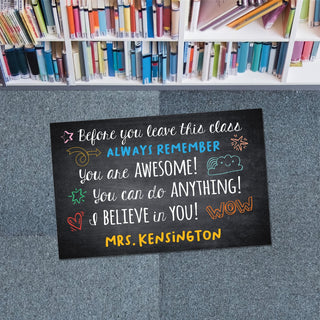 Before you leave this class
ALWAYS REMEMBER
You are AWESOME!
You can do ANYTHING!
I BELIEVE in YOU!
WOW
MRS. KENSINGTON